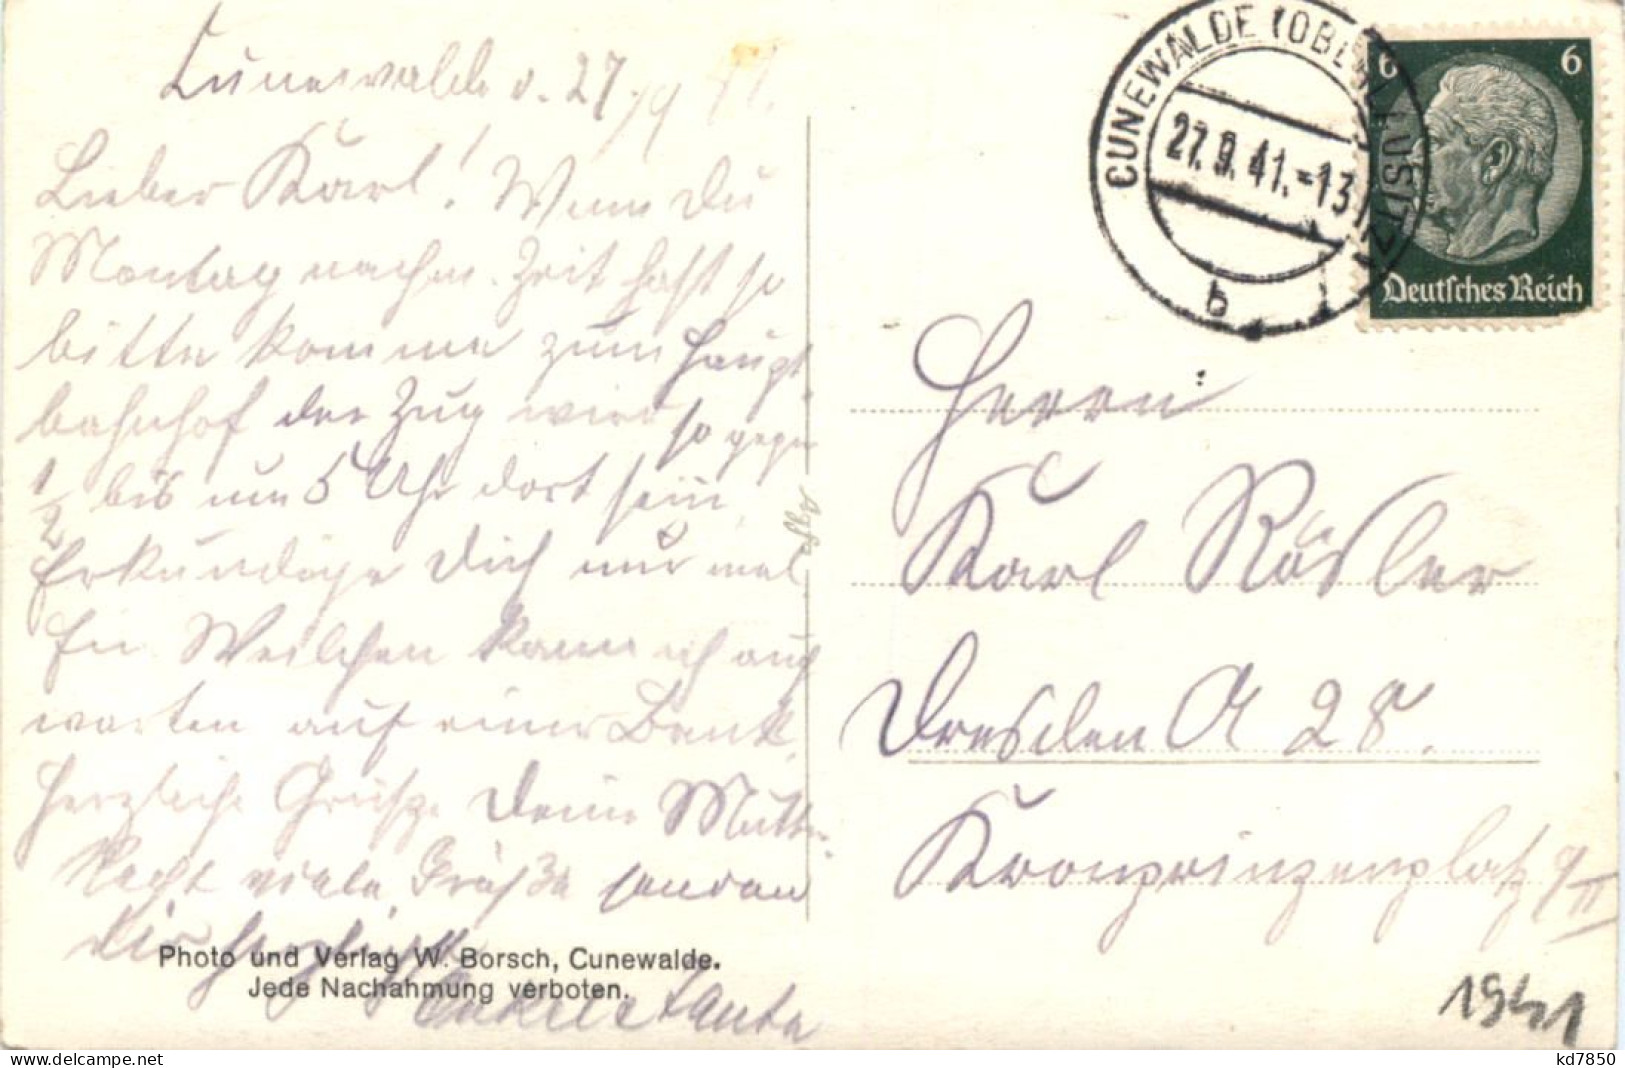 Cunewalde d. 27/9 41.
Lieber Karl! Wenn Du
Montag nachm. Zeit hast so
bitte komme zum Haupt-
bahnhof der Zug wird so gegen
1/2 bis um 5 Uhr dort sein,
Erkundige Dich nur mal.
Ein Weilchen kann ich auch
warten auf einer Bank.
Herzliche Grüße Deine Mutter.
Recht viele Grüße senden
Dir
Onkel u Tante
Photo und Verlag W. Borsch, Cunewalde.
Jede Nachahmung verboten.
CUNEWALDE (OBERLAUSITZ)
27.9.41.-13
b
6 6
Deutsches Reich
Herrn
Karl Rösler
Dresden A 28.
Kronprinzenplatz 9 II
1941
www.delcampe.net
kd7850